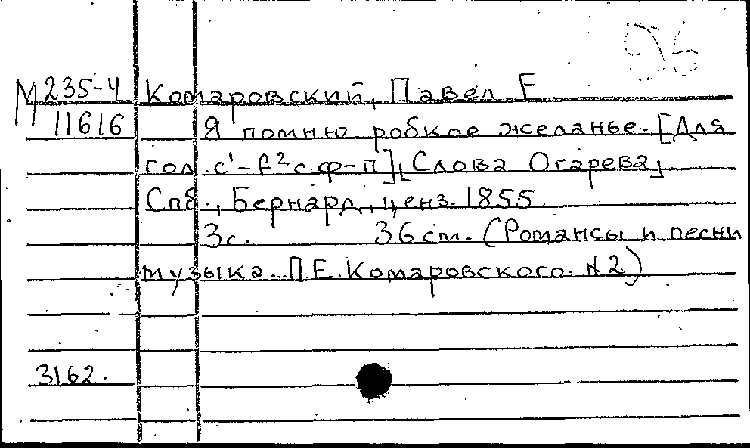 М 235-4 Комаровский, Павел Е
11616 Я помню робкое желанье. [Для
гол. c¹-f² с ф-п], [Слова Огарева]
Спб., Бернард, ценз. 1855
3с. 36 cm. (Романсы и песни
музыка. П.Е. Комаровского. N2)
3162.